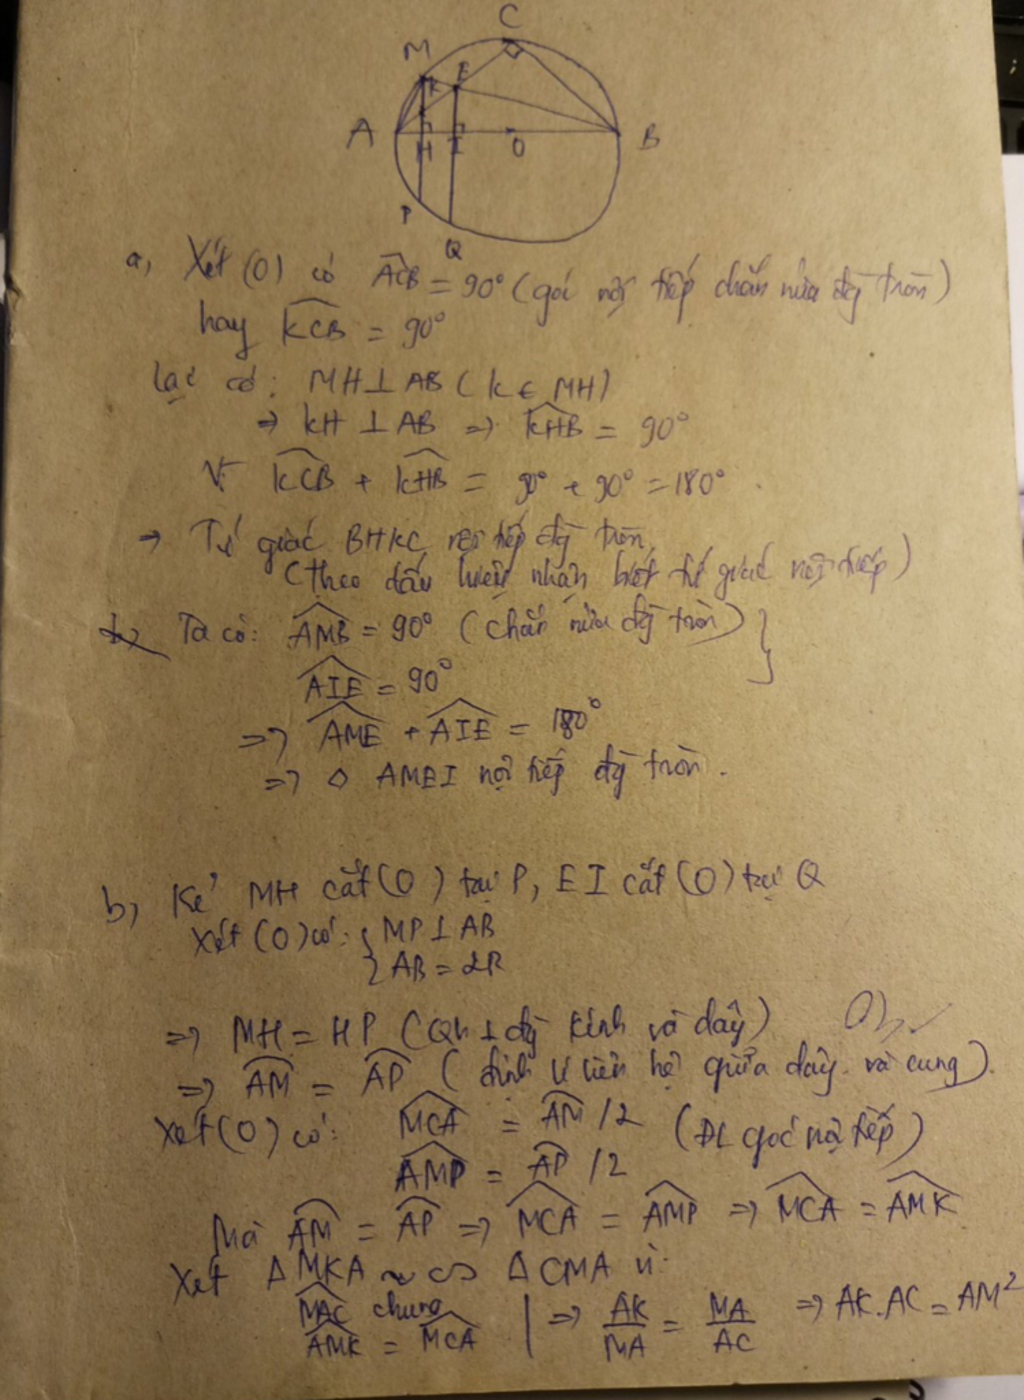 C
M
E
K
A
H
I
O
B
P
Q
a, Xét (O) có ACB = 90° (góc nội tiếp chắn nửa đg tròn)
hay KCB = 90°
lại có: MH ⊥ AB (K ∈ MH)
⇒ KH ⊥ AB ⇒ KHB = 90°
Vì KCB + KHB = 90° + 90° = 180°
→ Tứ giác BHKC nội tiếp đg tròn
(theo dấu hiệu nhận biết tứ giác nội tiếp)
b, Ta có: AMB = 90° (chắn nửa đg tròn) }
AIE = 90°
⇒ AME + AIE = 180°
⇒ ◊ AMEI nội tiếp đg tròn.
b, Kẻ MH cắt (O) tại P, EI cắt (O) tại Q
Xét (O) có: { MP ⊥ AB
AB = 2R
⇒ MH = HP (Qh ⊥ đg kính và dây)
⇒ AM = AP (định lí liên hệ giữa dây và cung).
Xét (O) có: MCA = AM /2 (ĐL góc nội tiếp)
AMP = AP /2
Mà AM = AP ⇒ MCA = AMP ⇒ MCA = AMK
Xét ΔMKA ∽ ΔCMA vì:
MAC chung
AMK = MCA | ⇒ AK/MA = MA/AC ⇒ AK.AC = AM²